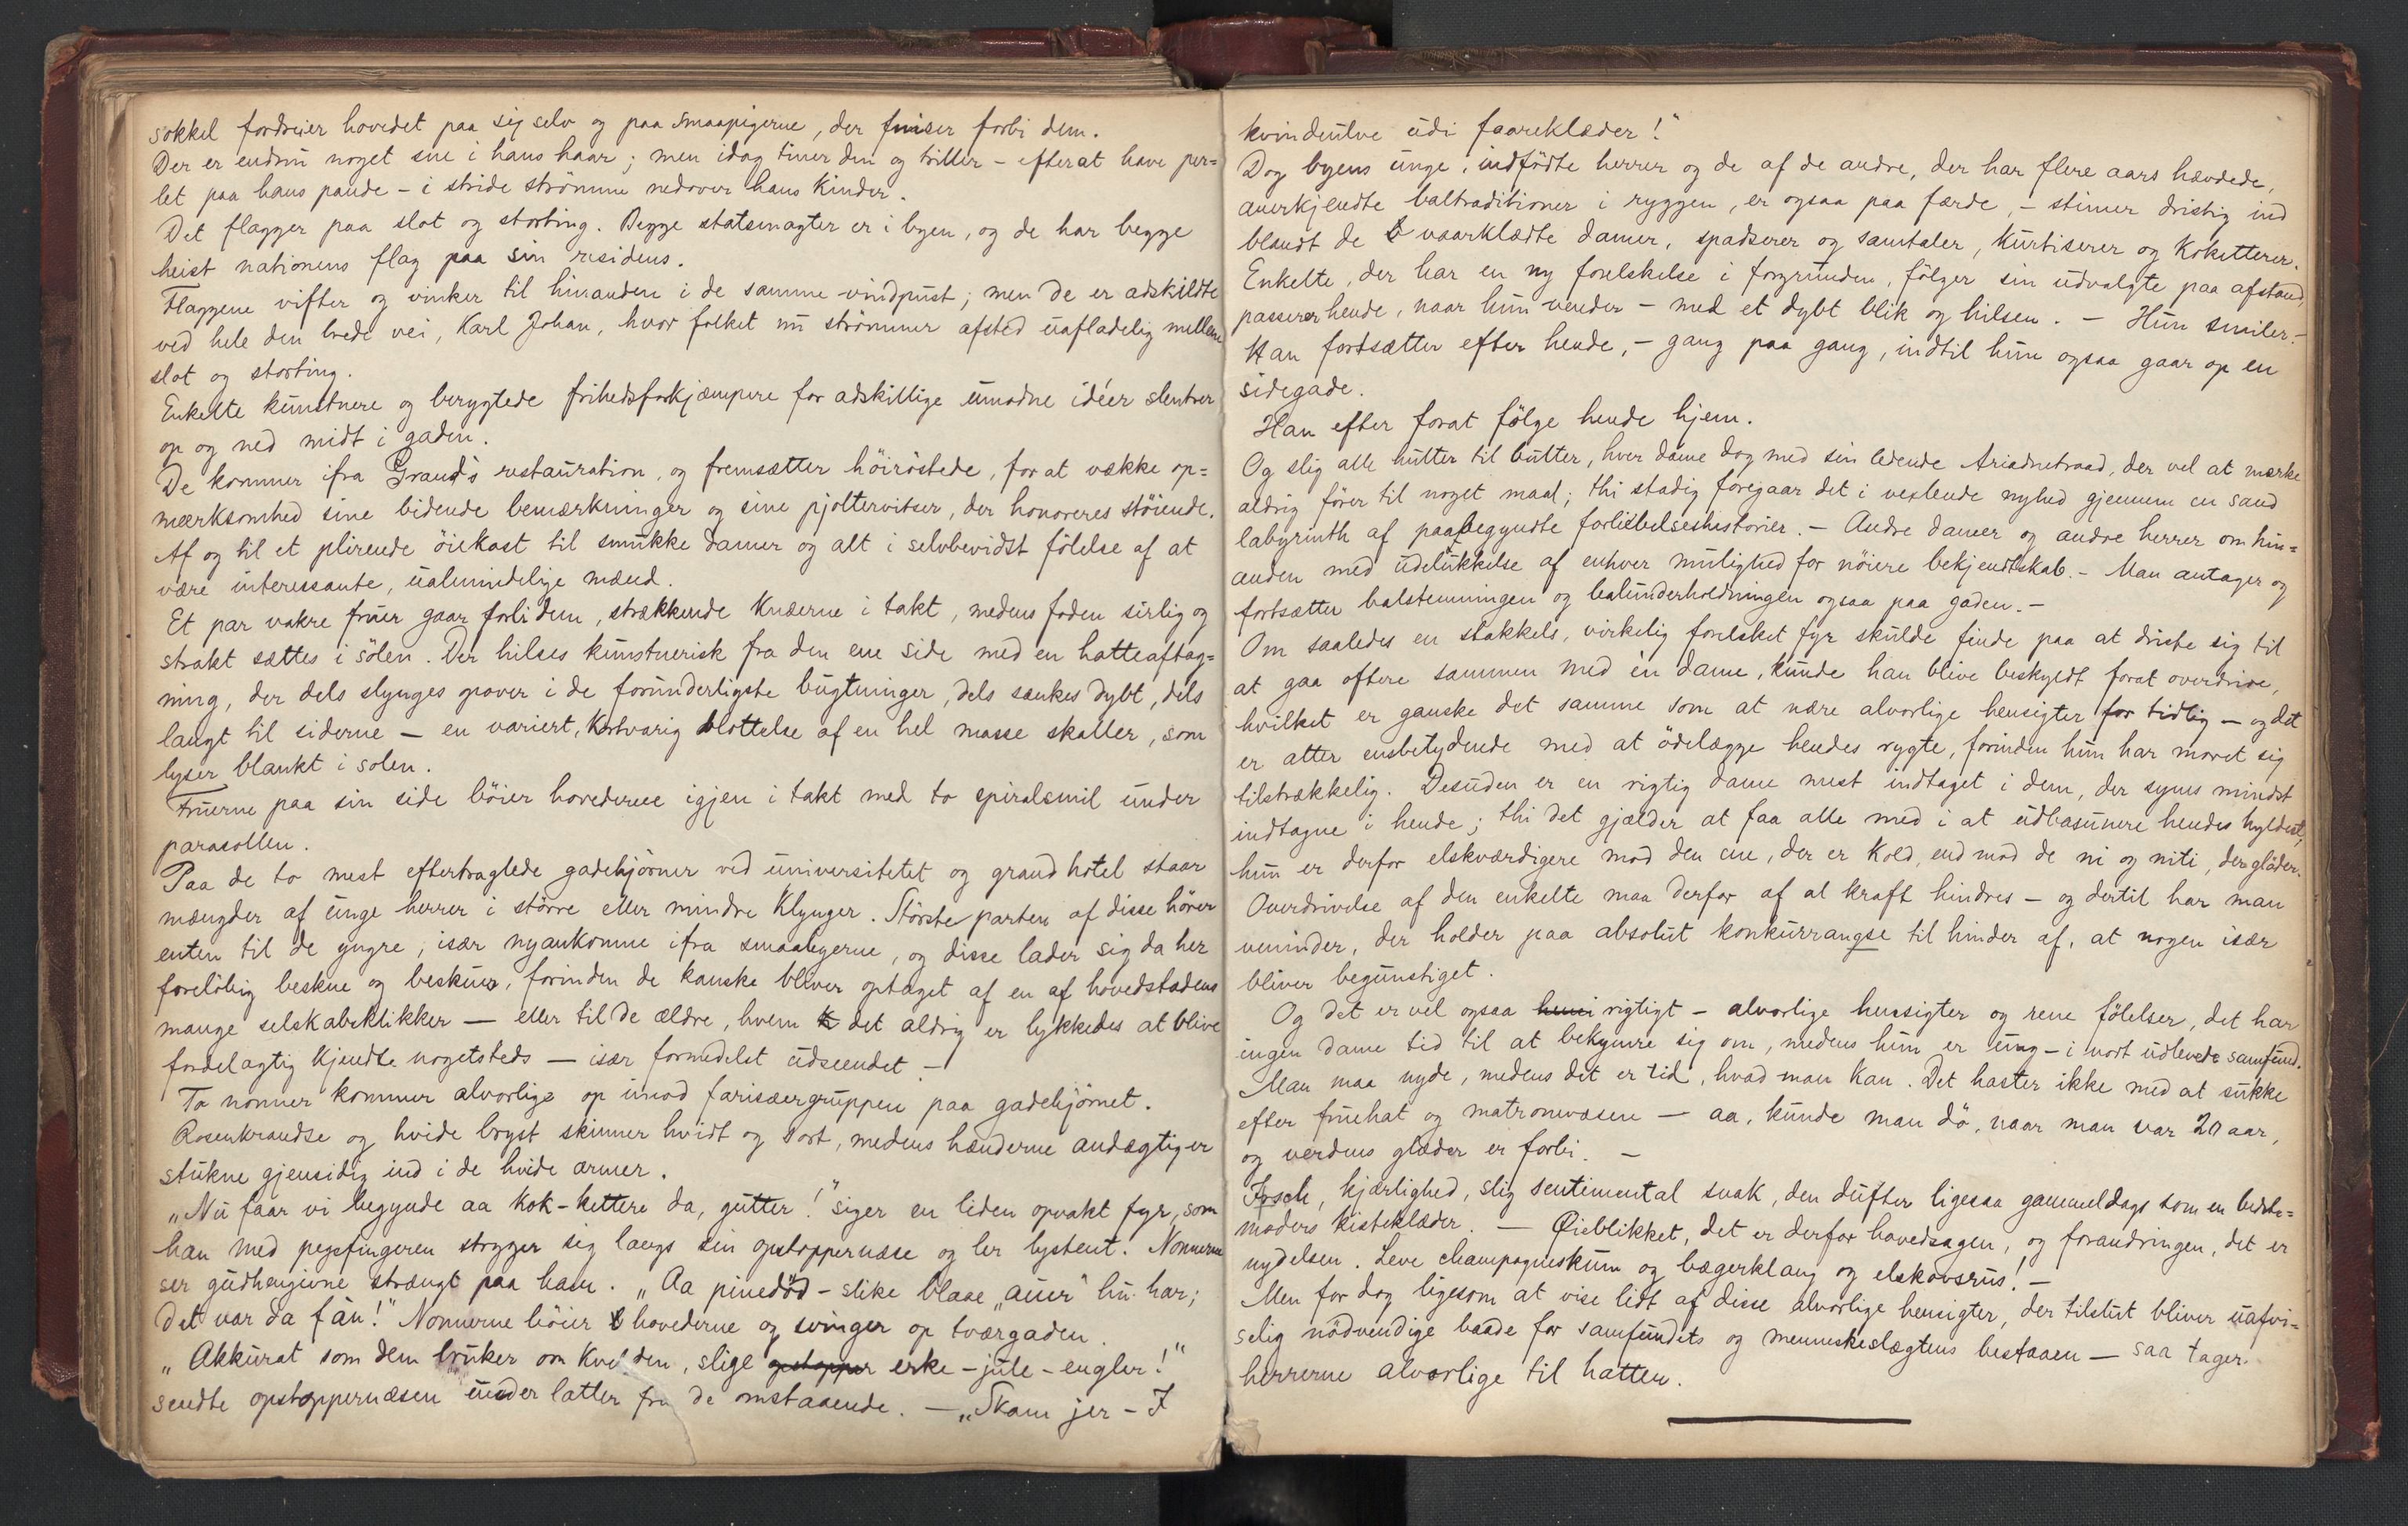 sokkel fordreier hovedet paa sig selv og paa smaapigerne, der fniser forbi dem.
Der er endnu noget sne i hans haar; men idag tiner den og triller – efterat have per=
let paa hans pande – i stride strömme nedover hans kinder.
Det flagger paa slot og storting. Begge statsmagter er i byen, og de har begge
heist nationens flag paa sin residens.
Flaggene vifter og vinker til hinanden i de samme vindpust; men de er adskildte
ved hele den brede vei, Karl Johan, hvor folket nu strömmer afsted uafladelig mellem
slot og storting.
Enkelte kunstnere og berygtede frihedsforkjæmpere for adskillige umodne idéer slentrer
op og ned midt i gaden.
De kommer ifra Grand's restauration, og fremsætter höiröstede, for at vække op=
mærksomhed sine bidende bemærkninger og sine pjoltervitser, der honoreres stöiende.
Af og til et plirende öiekast til smukke damer og alt i selvbevidst fölelse af at
være interessante, ualmindelige mænd.
Et par vakre fruer gaar forbi dem, strækkende knæerne i takt, medens foden sirlig og
strakt sættes i sölen. Der hilses kunstnerisk fra den ene side med en hatteaftag=
ning, der dels slynges opover i de forunderligste bugtninger, dels sænkes dybt, dels
langt til siderne – en variert, kortvarig blottelse af en hel masse skaller, som
lyser blankt i solen.
Fruerne paa sin side böier hovederne igjen i takt med to spiralsmil under
parasollen.
Paa de to mest eftertragtede gadehjörner ved universitetet og grand hotel staar
mængder af unge herrer i större eller mindre klynger. Störsteparten af disse hörer
enten til de yngre, især nyankomne ifra smaabyerne, og disse lader sig da her
forelöbig beskue og beskuer, forinden de kanske bliver optaget af en af hovedstadens
mange selskabsklikker – eller til de ældre, hvem det aldrig er lykkedes at blive
fordelagtig kjendte nogetsteds – især formedelst udseendet –
To nonner kommer alvorlige op imod farisæergruppen paa gadehjörnet.
Rosenkrandse og hvide bryst skinner hvidt og sort, medens hænderne andægtig er
stukne gjensidig ind i de hvide ærmer.
„Nu faar vi begynde aa kok-kettere da, gutter!" siger en liden opvakt fyr, som
han med pegefingeren stryger sig langs sin opstoppernæse og ler lystent. Nonnerne
ser gudhengivne strængt paa ham. „Aa pinedöd – slike blaae „auer" hu har;
det var da fan!" Nonnerne böier hovederne og svinger op tværgaden.
„Akkurat som dem bruker om kvelden, slige opstopper erke-jule-engler!"
sendte opstoppernæsen under latter fra de omstaaende. – „Skam jer – I
kvindeulve udi faareklæder!"
Dog byens unge, indfödte herrer og de af de andre, der har flere aars hævdede,
anerkjendte baltraditioner i ryggen, er ogsaa paa færde, – stimer dristig ind
blandt de vaarklædte damer, spadserer og samtaler, kurtiserer og koketterer.
Enkelte, der har en ny forelskelse i forgrunden, fölger sin udvalgte paa afstand,
passerer hende, naar hun vender – med et dybt blik og hilsen. – Hun smiler. –
Han fortsætter efter hende, – gang paa gang, indtil hun ogsaa gaar op en
sidegade.
Han efter forat fölge hende hjem.
Og slig alle hutter til butter, hver dame dog med sin ledende Ariadnetraad, der vel at mærke
aldrig förer til noget maal; thi stadig foregaar det i vexlende nyhed gjennem en sand
labyrinth af paabegyndte forliebelseshistorier. – Andre damer og andre herrer om hin=
anden med udelukkelse af enhver mulighed for nöiere bekjendtskab. – Man antager og
fortsætter balstemningen og balunderholdningen ogsaa paa gaden. –
Om saaledes en stakkels, virkelig forelsket fyr skulde finde paa at driste sig til
at gaa oftere sammen med én dame, kunde han blive beskyldt forat overdrive,
hvilket er ganske det samme som at nære alvorlige hensigter for tidlig – og det
er atter ensbetydende med at ödelægge hendes rygte, forinden hun har moret sig
tilstrækkelig. Desuden er en rigtig dame mest indtaget i dem, der synes mindst
indtagne i hende; thi det gjælder at faa alle med i at udbasunere hendes hyldest,
hun er derfor elskværdigere mod den ene, der er kold, end mod de ni og niti, der glöder.
Overdrivelse af den enkelte maa derfor af al kraft hindres – og dertil har man
veninder, der holder paa absolut konkurrangse til hinder af, at nogen især
bliver begunstiget.
Og det er vel ogsaa rigtigt – alvorlige hensigter og rene fölelser, det har
ingen dame tid til at bekymre sig om, medens hun er ung – i vort udlevede samfund.
Man maa nyde, medens det er tid, hvad man kan. Det haster ikke med at sukke
efter fruehat og matronevæsen – aa, kunde man dö, naar man var 20 aar,
og verdens glæder er forbi. –
Isch, kjærlighed, slig sentimental snak, den dufter ligesaa gammeldags som en bedste=
moders kisteklæder. – Öieblikket, det er derfor hovedsagen, og forandringen, det er
nydelsen. Leve champagneskum og bægerklang og elskovsrus! –
Men for dog ligesom at vise lidt af disse alvorlige hensigter, der tilslut bliver uafvi=
selig nödvendige baade for samfundets og menneskeslægtens bestaaen – saa tager
herrerne alvorlige til hatten.